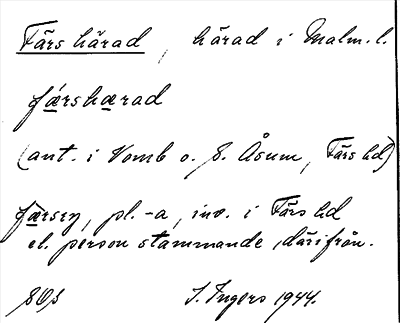 Färs härad, härad i Malm. l.
færshærad
(ant. i Vomb o. S. Åsum, Färs hd)
færsry, pl. -a, inv. i Färs hd
el. person stammande därifrån.
I. Ingers 1944.